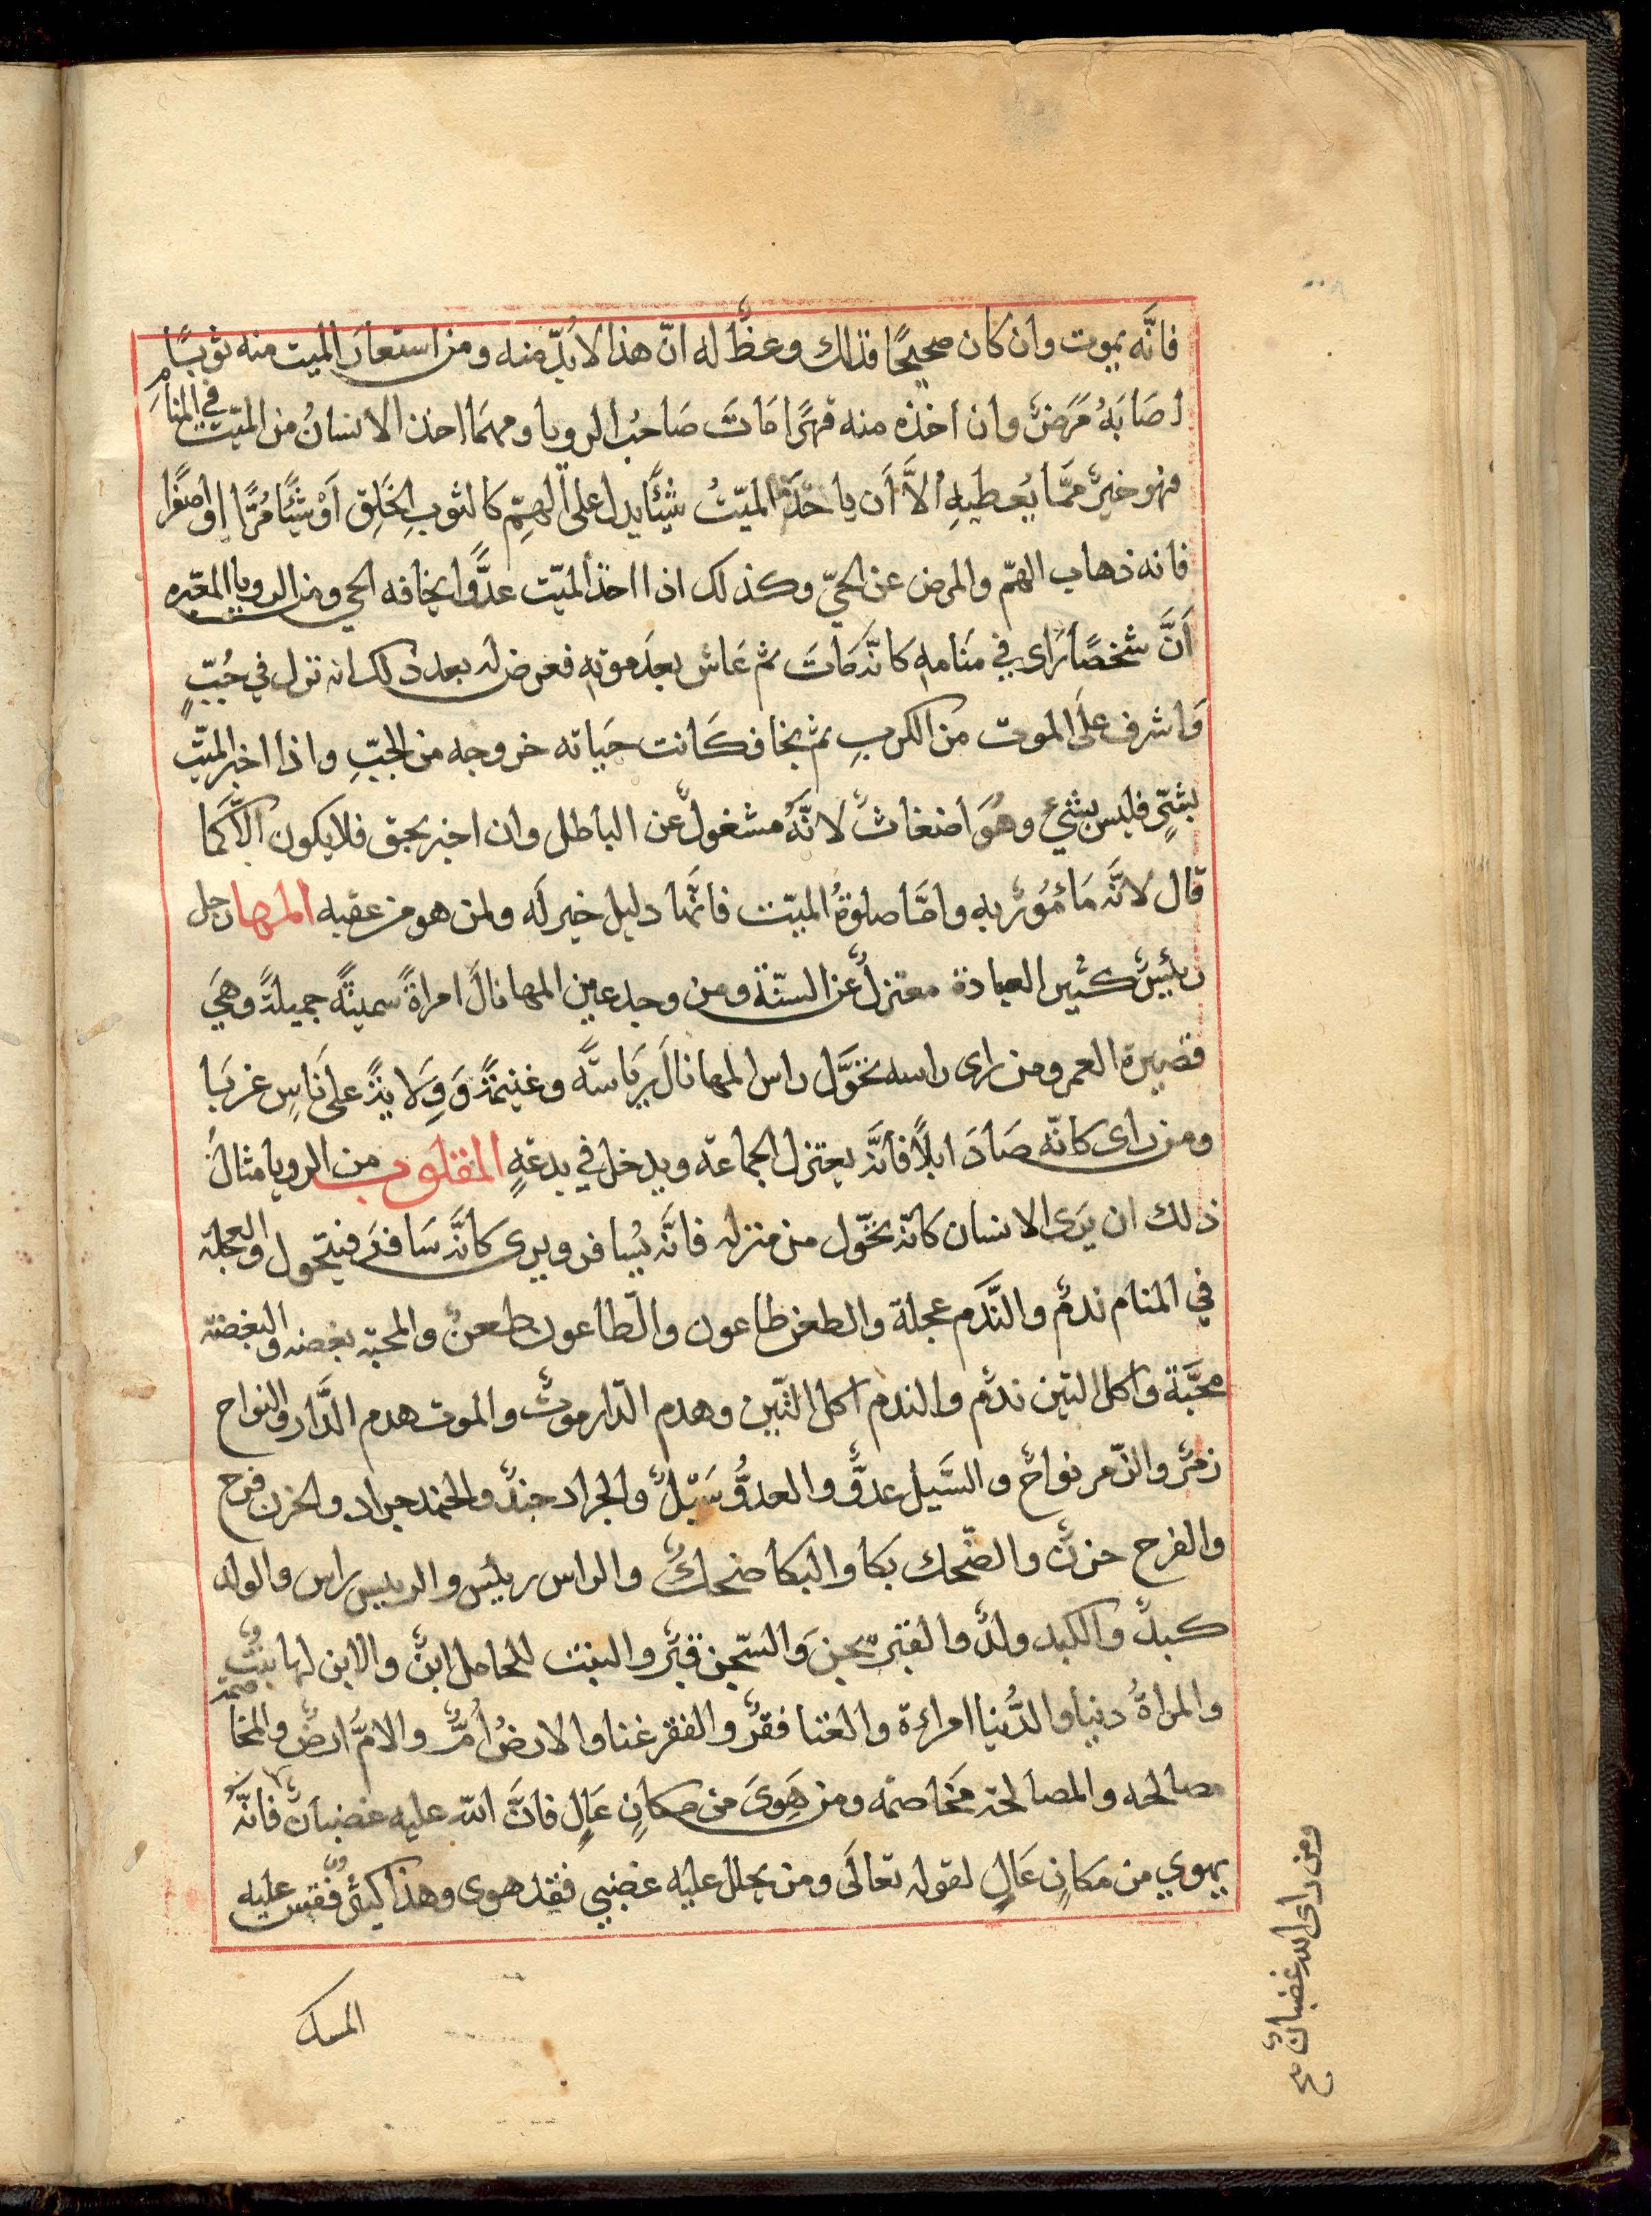 فانَّه يموت وان كان صحيحًا فذلك وعظٌ له انّ هذا لابُدّ منه ومن استعارَ الميت منه ثوبًا
اصَابَهُ مَرَضٌ وان أخذه منه قهرًا مَاتَ صَاحبُ الرويا ومهمَا اخذ الانسانُ من الميّت في المنام
فهو خيرٌ ممَّا يُعطيهِ الاَّ أن ياخُذَ الميّتُ شيئًا يدل على الهمِّ كالثوبِ الخَلِق اَوْ شيئًا مُرًّا او اصفرا
فانه ذهاب الهمّ والمرض عن الحيّ وكذلك اذا اخذ الميّت عدوًّا يخافه الحي ومن الرويا المعبّره
اَنَّ شخصًا رَاى في مَنَامهِ كانَّه مَاتَ ثم عَاش بعدَ موتهِ فعرض له بعد ذلك انه نزل في جُبٍّ
وَاشرف علَى الموت من الكربِ ثم نجا فكَانت حيَاته خروجه من الجبِّ واذا اخبر الميّت
بشيٍ فليس بشيءٍ وهُوَ أضغاثٌ لانَّهُ مشغولٌ عن الباطل وان اخبر بحق فلا يكون الاّ كمَا
قال لانَّه مَأمُورٌ به وامَّا صلوةُ الميّت فانَّها دليل خير لَه ولمن هو من عقبه المها رجل
رئيسٌ كثير العبادة معتزلٌ عن السنّة ومن وجد عين المها نالَ امراةً سمينةً جميلةً وهيَ
قصيرة العمر ومن راى راسه تحوَّل راس المها نالَ رِيَاسَةً وغنيمَةً وَوِلايةً علَى نَاسٍ غربَا
ومن راى كانّه صَادَ ايلاً فانَّه يعتزل الجماعة ويدخل في بدعةٍ المقلوب من الرويا مثالُ
ذلك ان يَرَى الانسان كانّه تحوّل من منزله فانَّه يُسافر ويرى كانَّه سَافرَ فيتحول والعجلة
في المنام ندمٌ والنَّدَم عجلة والطعن طاعون والطّاعون طعنٌ والمحبّة بغضه والبغضة
محبَّة واكل التين ندمٌ والندم اكل التّين وهدم الدّار موتٌ والموت هدم الدَّار والنواح
زمْرٌ والزّمر نواحٌ والسَّيل عدوٌّ والعدوُّ سَيْلٌ والجراد جندٌ والجند جراد والحزن فرح
والفرح حزنٌ والضّحك بكا والبكا ضحكٌ والراس رئيس والرييس راس والولد
كبدٌ والكبد ولدٌ والقبر سجن وَالسّجن قبرٌ والبنت للحامل ابنٌ والابن لها بنتٌ
والمراةُ دنيا والدُّنيا امراءة والغنا فقرٌ والفقر غنا والارضُ اُمٌّ والامُّ ارضٌ والمخاصمة
مصالحه والمصالحة مخَاصمَه ومن هَوِىَ من مكانٍ عَالٍ فانَّ الله عليه غضبانٌ فانَّه
يهوي من مَكانٍ عَالٍ لقوله تعالَى ومن يحلل عليه غضبي فقد هوى وهذا كثيرٌ فقس عليه
المسك
ومن راى الله غضبانٌ صح